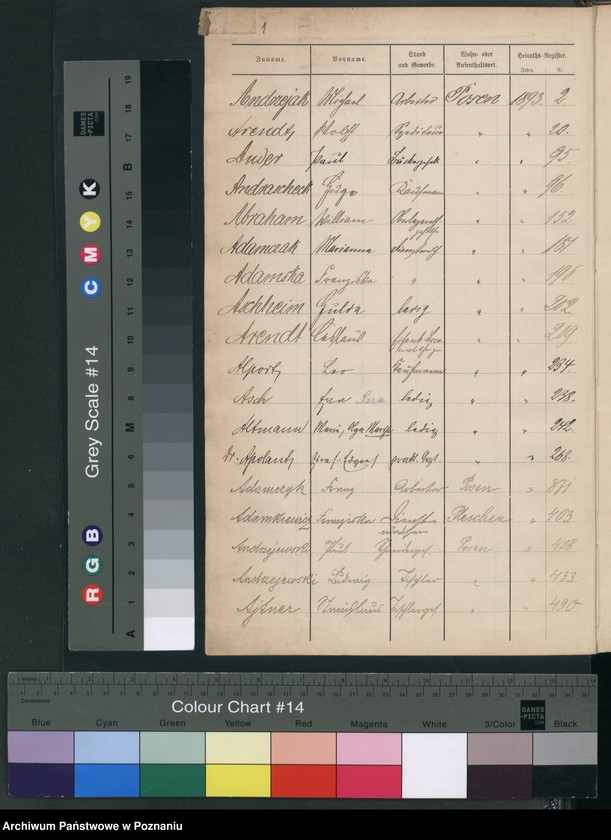 1
Zuname. Vorname. Stand und Gewerbe. Wohn- oder Aufenthaltsort. Heiraths-Register.
Jahrg. N.
Andrzejak Michael Arbeiter Posen 1893. 2.
Arendt, Adolff Spediteur " " 20.
Ander Paul Bäckergeselle " " 95
Andrascheck Hugo Kaufmann " " 96.
Abraham William " " 152
Adamczak Marianna " " 181
Adamska Franziska " " " 196
Aschheim Hulda ledig " " 202
Arendt " " 219.
Alport, Leo Kaufmann " " 234.
Asch Eva Sara ledig " " 238.
Altmann Marie, ledig " " 242.
Dr. Apolant, prakt. Arzt. " " 268.
Adamczyk Franz Arbeiter Posen " 371
Adamkiewicz Franziska Pleschen " 403
Andrzejewski Paul Posen " 408
Andrzejewski Ludwig Tischler " " 433
Ajtner Stanislaus Tischlerges. " " 490
DANES-PICTA.COM
Grey Scale #14
R G B C M Y K
A 1 2 3 4 5 6 M 8 9 10 11 12 13 14 15 B 17 18 19
Inches
Centimetres
Colour Chart #14
DANES-PICTA.COM
Blue Cyan Green Yellow Red Magenta White 3/Color Black
Archiwum Państwowe w Poznaniu